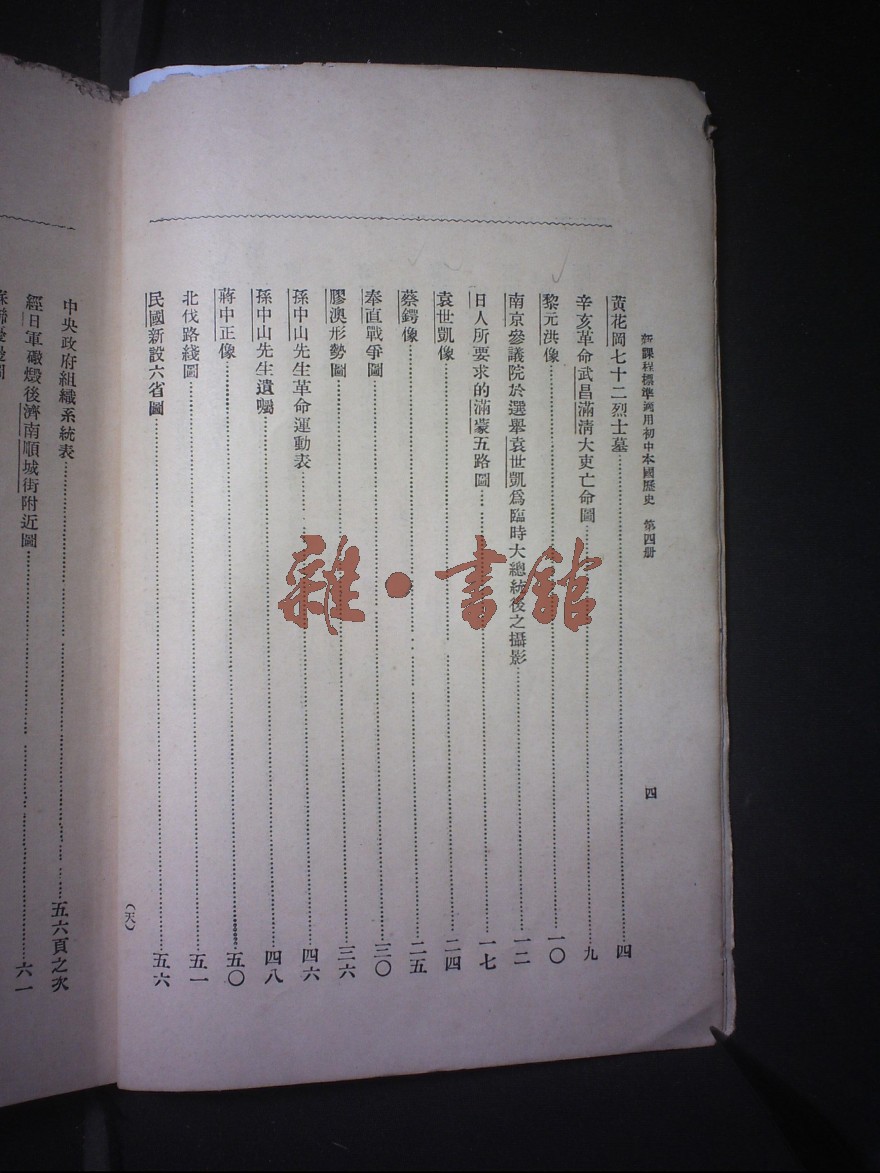 新課程標準適用初中本國歷史 第四册 四
黃花岡七十二烈士墓 四
辛亥革命武昌滿清大吏亡命圖 九
黎元洪像 一〇
南京參議院於選舉袁世凱爲臨時大總統後之攝影 一二
日人所要求的滿蒙五路圖 一七
袁世凱像 二四
蔡鍔像 二五
奉直戰爭圖 三〇
膠澳形勢圖 三六
孫中山先生革命運動表 四六
孫中山先生遺囑 四八
蔣中正像 五〇
北伐路綫圖 五一
民國新設六省圖 五六
中央政府組織系統表 五六頁之次
經日軍礮燬後濟南順城街附近圖 六一
雜·書館